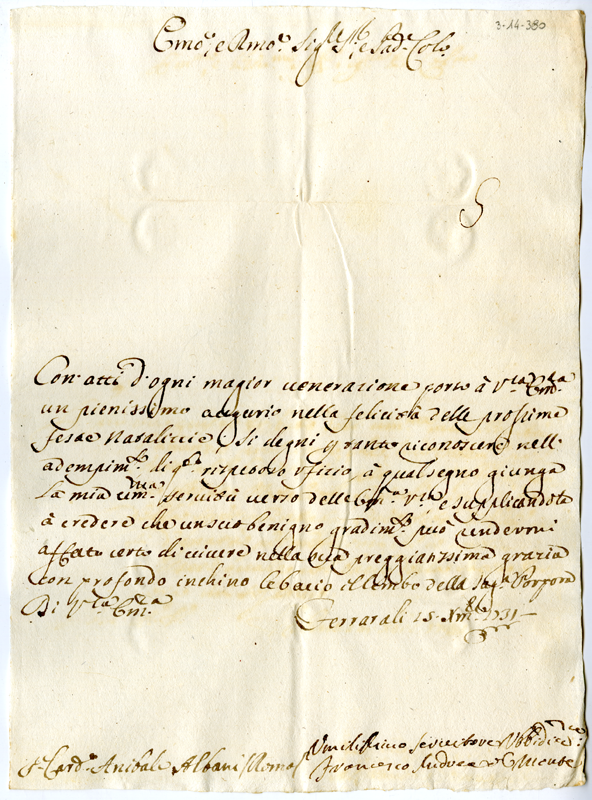 3-14-380
Emo. e Rmo. Sig.re e Pad.e Colo.
Con atti d'ogni magior venerazione porto à V.ra Em.za
un pienissimo augurio nella felicità delle prossime
feste Natalizie. Si degni p tanto riconoscere nell'
adempim.to di q.to rispetoso ufficio, à qual segno giunga
la mia um.ma servitù verso dell'Em.a V.ra, e supplicandola
à credere che un suo benigno gradim.to può rendermi
affato certo di vivere nella sua preggiatissima grazia
con profondo inchino le bacio il lembo della Sag.a Porpora
Di V.ra Em.za
Ferrara li 15 Xmbre 1731
S. Card.e Anibale Albani / Roma
Umilissimo Servitore
Francesco Andrea